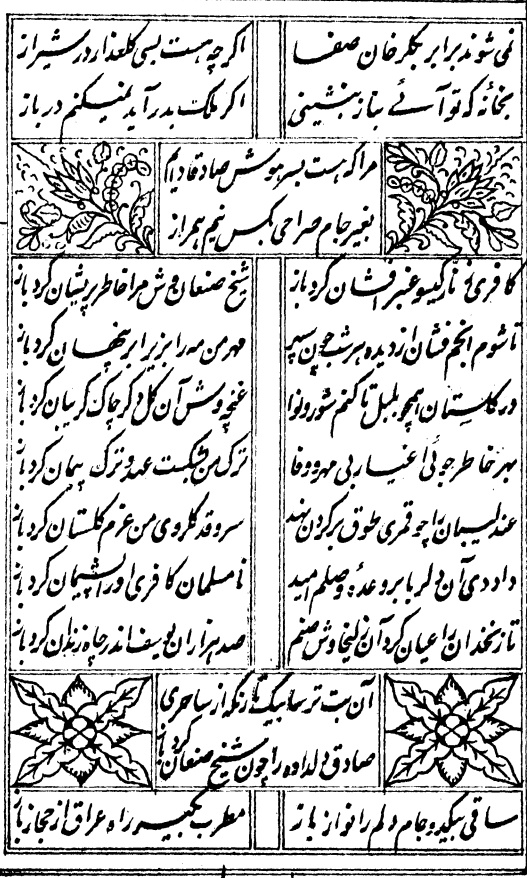 نمی شوند برابر بگلرخان صفا
اگرچه هست بسی گلعذار در شیراز
بخانه که تو آئی بناز بنشینی
اگر ملک بدر آید نمیکنم در باز
مرا که هست بسر هوش صادقا دایم
بغیر جام صراحی بکس نیم همراز
کافری کز ناز گیسو عنبر افشان کرد باز
شیخ صنعان وش مرا خاطر پریشان کرد باز
تا شوم انجم فشان از دیده هر شب چون سپهر
مهر من مه را بزیر ابر پنهان کرد باز
در گلستان همچو بلبل تا کنم شور و نوا
غنچه وش آن گل دگر چاک گریبان کرد باز
بهر خاطر جوئی اغیار بی مهر و وفا
ترک من بشکست عهد و ترک پیمان کرد باز
عندلیبان را چو قمری طوق بر گردن نهد
سرو قد گلروی من عزم گلستان کرد باز
داد دی آن دلربا بر وعده وصلم امید
نامسلمان کافری او را پشیمان کرد باز
تا زنخدان را عیان کرد آن زلیخا وش صنم
صد هزاران یوسف اندر چاه زندان کرد باز
آن بت ترسا بیک تار نگه از ساحری
صادق دلداده را چون شیخ صنعان کرد باز
ساقی بیک دو جام دلم را نواز باز
مطرب بگیر راه عراق از حجاز باز